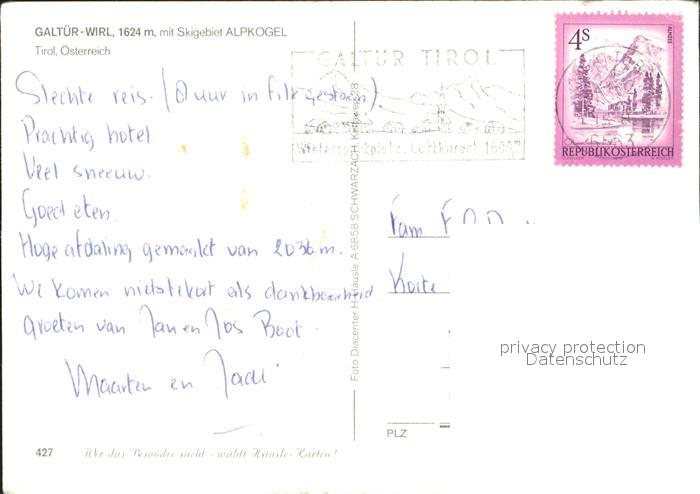 GALTÜR-WIRL, 1624 m, mit Skigebiet ALPKOGEL
Tirol, Österreich
GALTÜR TIROL
Wintersportplatz, Luftkurort 1600
4S
ALMSEE
REPUBLIK ÖSTERREICH
Slechte reis. (0 uur in file gestaan)
Prachtig hotel.
Veel sneeuw.
Goed eten.
Hoge afdaling gemaakt van 2036 m.
We komen niets tekort als dankbaarheid
Groeten van Jan en Jos Boot.
Maarten en
Fam
Korte
Foto Diacenter H. Häusle A-6858 SCHWARZACH
privacy protection
Datenschutz
PLZ
427 Wer das Besondre sucht - wählt Häusle-Karten!